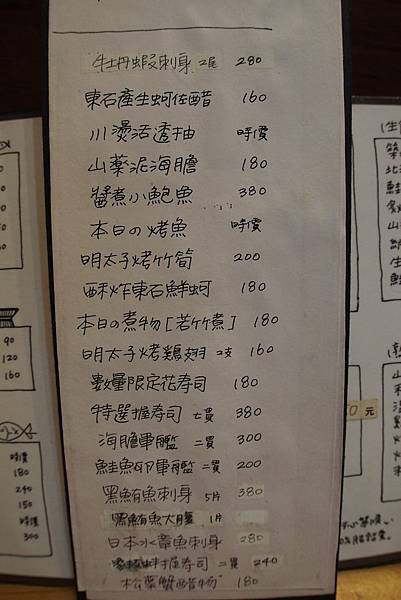 牡丹蝦刺身 2尾 280
東石產生蚵佐醋 160
川燙活透抽 時價
山藥泥海膽 180
醬煮小鮑魚 380
本日の烤魚 時價
明太子烤竹筍 200
酥炸東石鮮蚵 180
本日の煮物[若竹煮] 180
明太子烤鷄翅 2支 160
數量限定花寿司 180
特選握寿司 七貫 380
海膽軍艦 二貫 300
鮭魚卵軍艦 二貫 200
黑鮪魚刺身 5片 380
黑鮪魚大腹 1片
日本水章魚刺身 280
握寿司 二貫 240
松葉蟹醋物 180
90
120
160
時價
180
240
150
時價
300
元